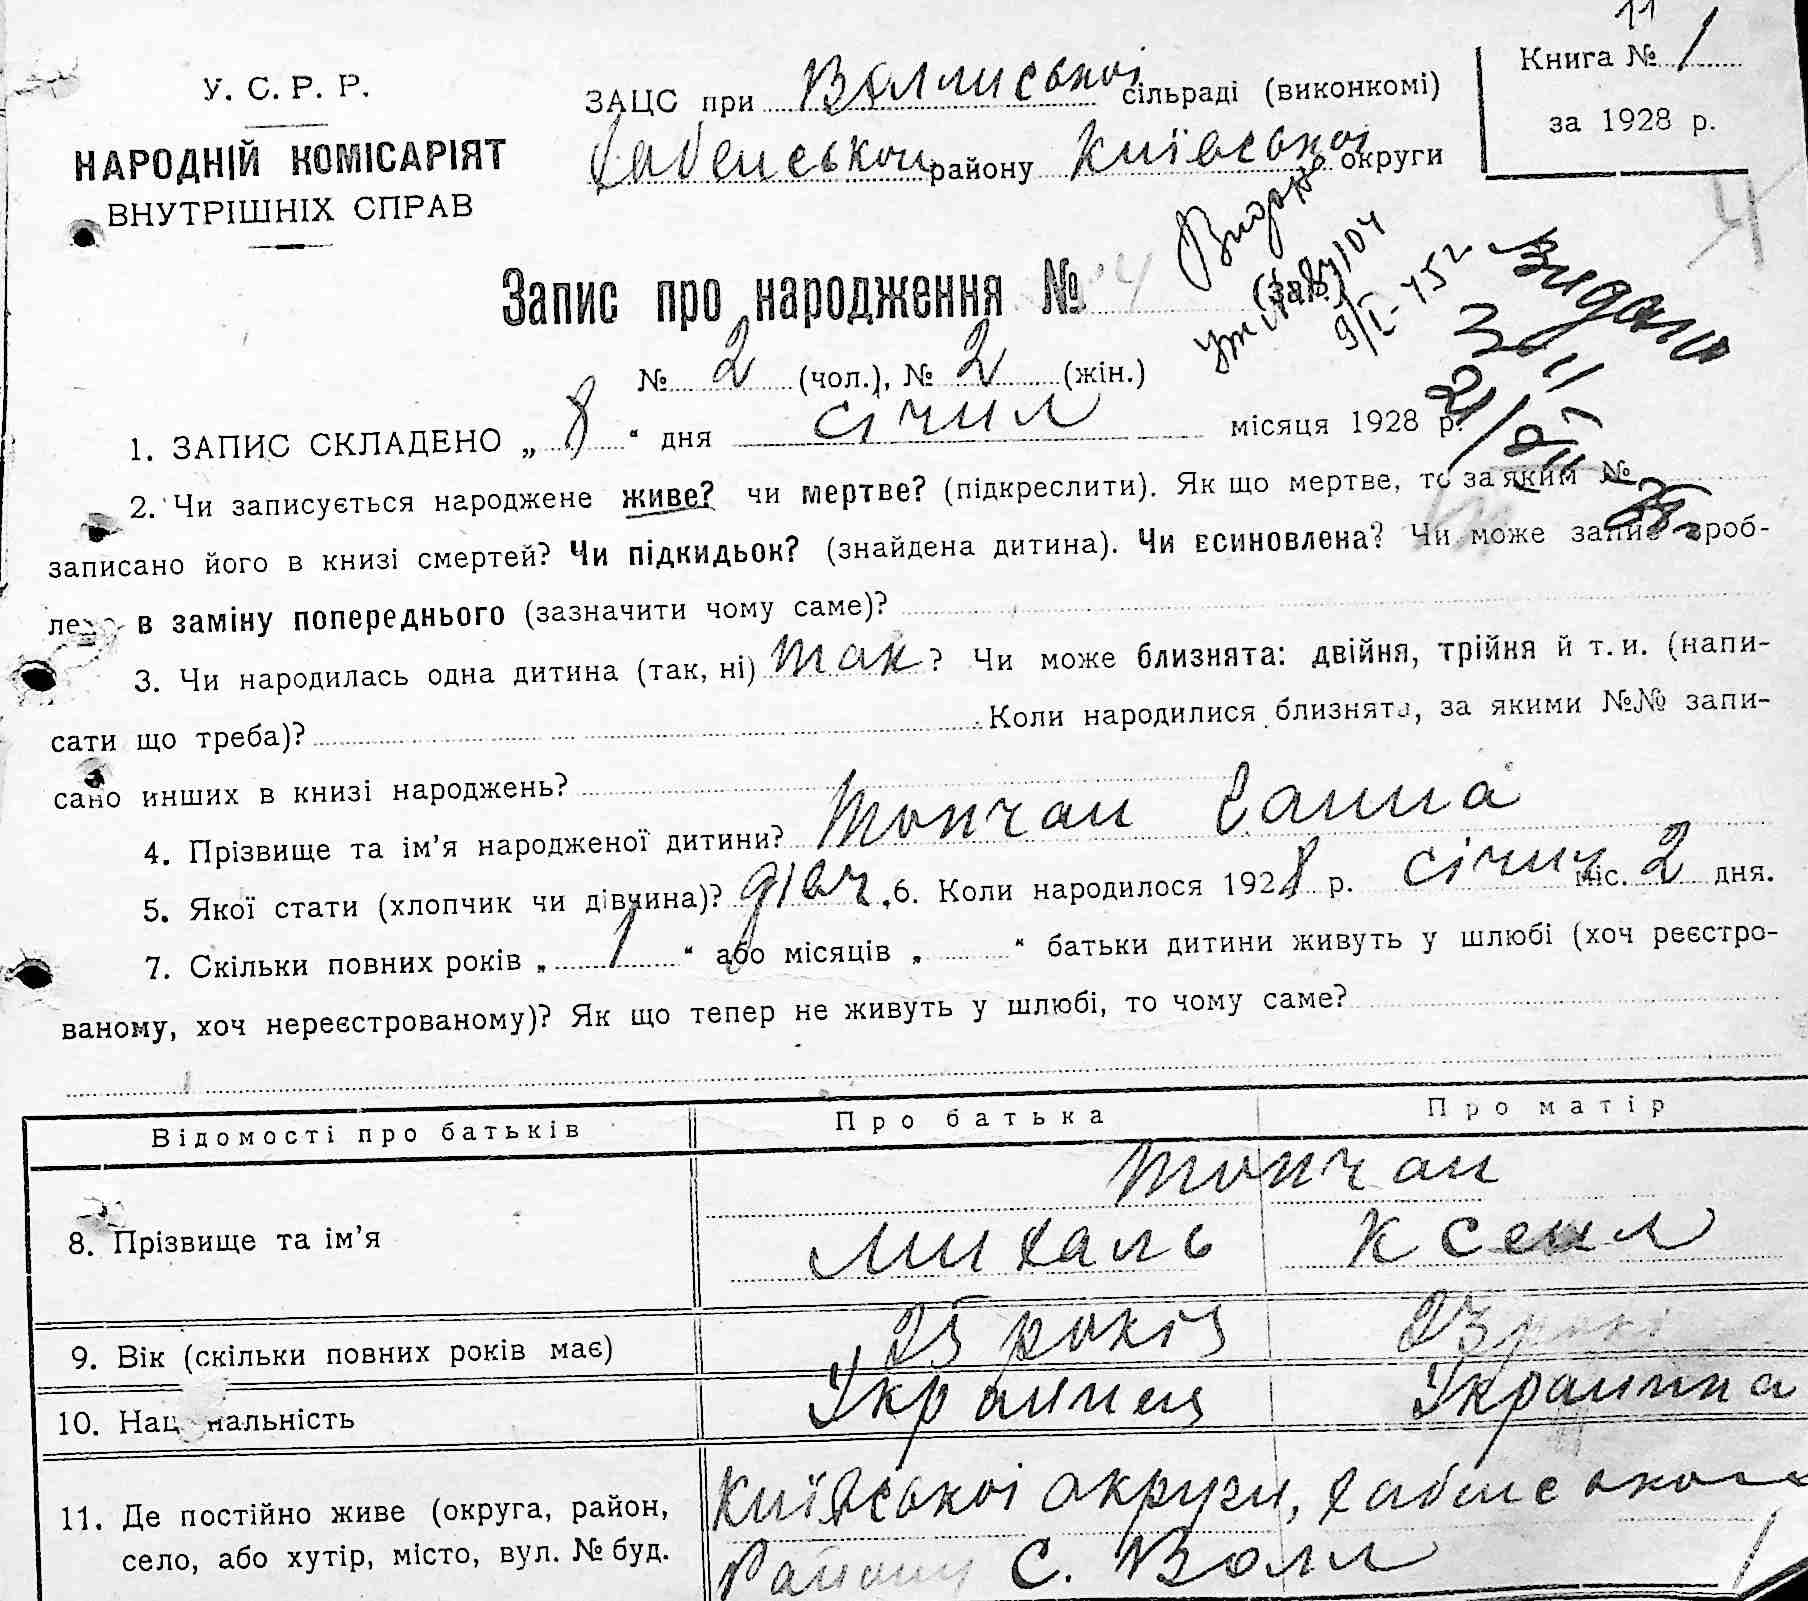 11
Книга № 1
за 1928 р.
У. С. Р. Р.
НАРОДНІЙ КОМІСАРІЯТ
ВНУТРІШНІХ СПРАВ
ЗАЦС при сільраді (виконкомі)
району Київської округи
Запис про народження № 4 (заг.)
4
Видано
№ 2 (чол.), № 2 (жін.)
1. ЗАПИС СКЛАДЕНО „ 8 “ дня січня місяця 1928 р.
2. Чи записується народжене живе? чи мертве? (підкреслити). Як що мертве, то за яким №
записано його в книзі смертей? Чи підкидьок? (знайдена дитина). Чи всиновлена? Чи може запис зроб-
лено в заміну попереднього (зазначити чому саме)?
3. Чи народилась одна дитина (так, ні) так ? Чи може близнята: двійня, трійня й т. и. (напи-
сати що треба)? Коли народилися близнята, за якими №№ запи-
сано инших в книзі народжень?
4. Прізвище та ім’я народженої дитини? Топчан Ганна
5. Якої стати (хлопчик чи дівчина)? дівч. 6. Коли народилося 1928 р. січня міс. 2 дня.
7. Скільки повних років „ 1 “ або місяців „ “ батьки дитини живуть у шлюбі (хоч реєстро-
ваному, хоч нереєстрованому)? Як що тепер не живуть у шлюбі, то чому саме?
Відомості про батьків Про батька Про матір
Топчан
8. Прізвище та ім’я Михаль Ксеня
9. Вік (скільки повних років має) 25 років 23 років
10. Національність Українец Українка
11. Де постійно живе (округа, район, Київської округи, Хабенського
село, або хутір, місто, вул. № буд. Району С. Воля